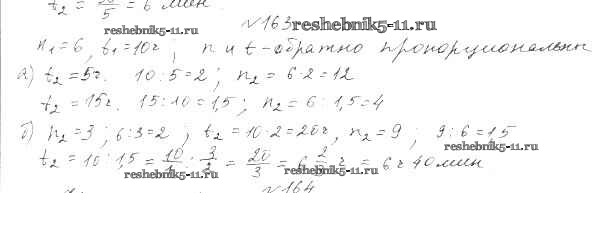 t₂ = 20/5 = 6 мин.
reshebnik5-11.ru
№163 reshebnik5-11.ru
n₁=6, t₁=10ч, n и t - обратно пропорциональны
а) t₂=5ч. 10:5=2; n₂=6·2=12
t₂=15ч. 15:10=1,5; n₂=6:1,5=4
б) n₂=3; 6:3=2; t₂=10·2=20ч, n₂=9; 9:6=1,5
reshebnik5-11.ru
t₂=10:1,5=10/1:3/2=20/3=6 2/3 ч=6ч 40мин
reshebnik5-11.ru reshebnik5-11.ru
№164